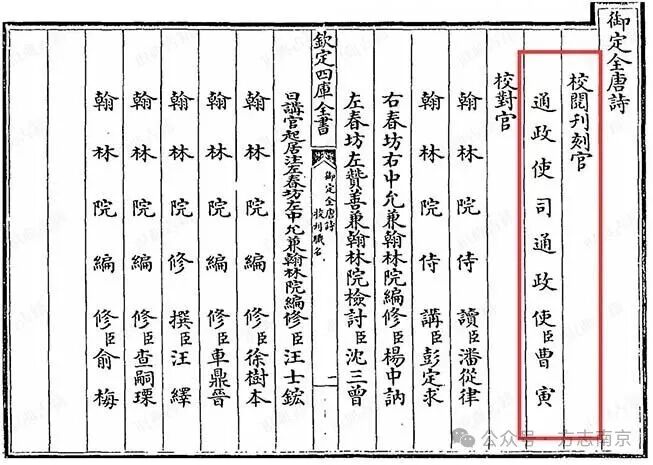 御定全唐詩
校閱刊刻官
通政使司通政使臣曹寅
校對官
翰林院侍讀臣潘從律
翰林院侍講臣彭定求
右春坊右中允兼翰林院編修臣楊中訥
左春坊左贊善兼翰林院檢討臣沈三曾
欽定四庫全書
御定全唐詩
校刊職名
一
日講官起居注左春坊左中允兼翰林院編修臣汪士鋐
翰林院編修臣徐樹本
翰林院編修臣車鼎晉
翰林院修撰臣汪繹
翰林院編修臣查嗣瑮
翰林院編修臣俞梅
公众号·方志南京